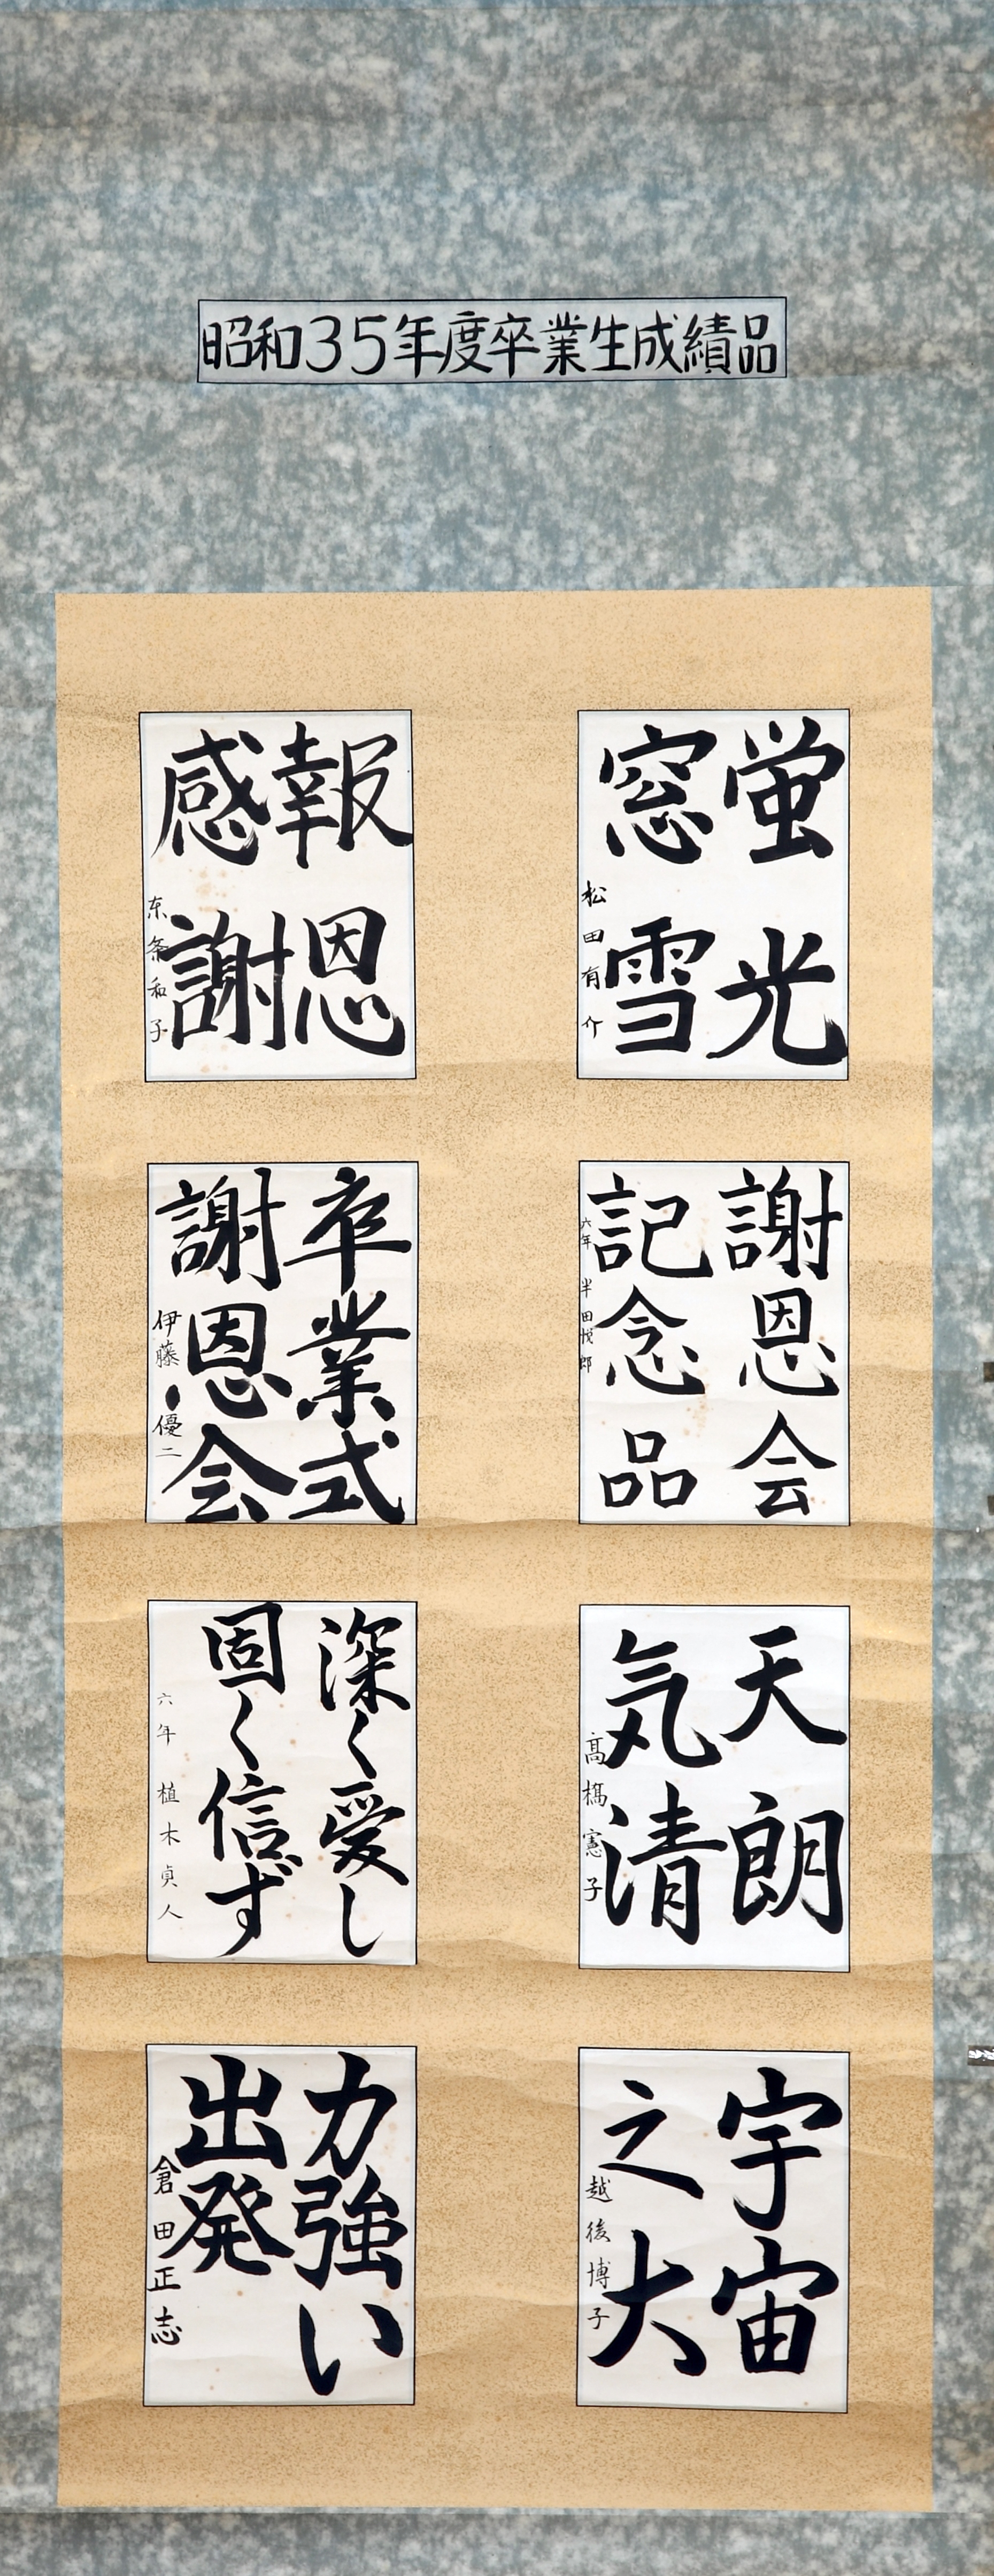 昭和35年度卒業生成績品
蛍光
窓雪
松田有介
報恩
感謝
东条和子
謝恩会
記念品
六年 半田悦郎
卒業式
謝恩会
伊藤優二
天朗
気清
髙橋憲子
深く愛し
固く信ず
六年 植木貞人
宇宙
之大
越後博子
力強い
出発
倉田正志